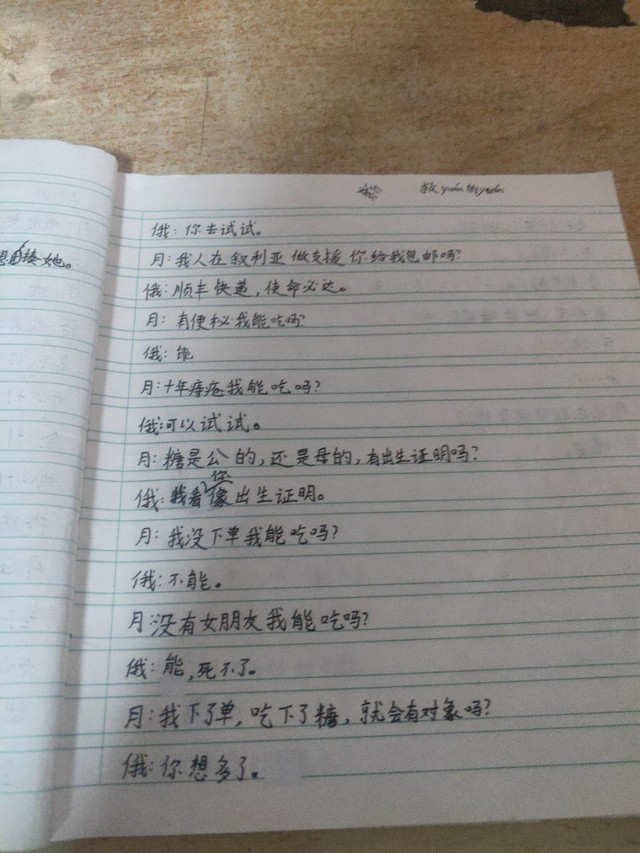 救 yuán
想接她。
俄：你去试试。
月：我人在叙利亚做支援你给我包邮吗?
俄：顺丰快递，使命必达。
月：有便秘我能吃吗?
俄：能
月：十年痔疮我能吃吗?
俄：可以试试。
月：糖是公的，还是母的，有出生证明吗?
你
俄：我看像出生证明。
月：我没下单我能吃吗?
俄：不能。
月：没有女朋友我能吃吗?
俄：能，死不了。
月：我下了单，吃下了糖，就会有对象吗?
俄：你想多了。